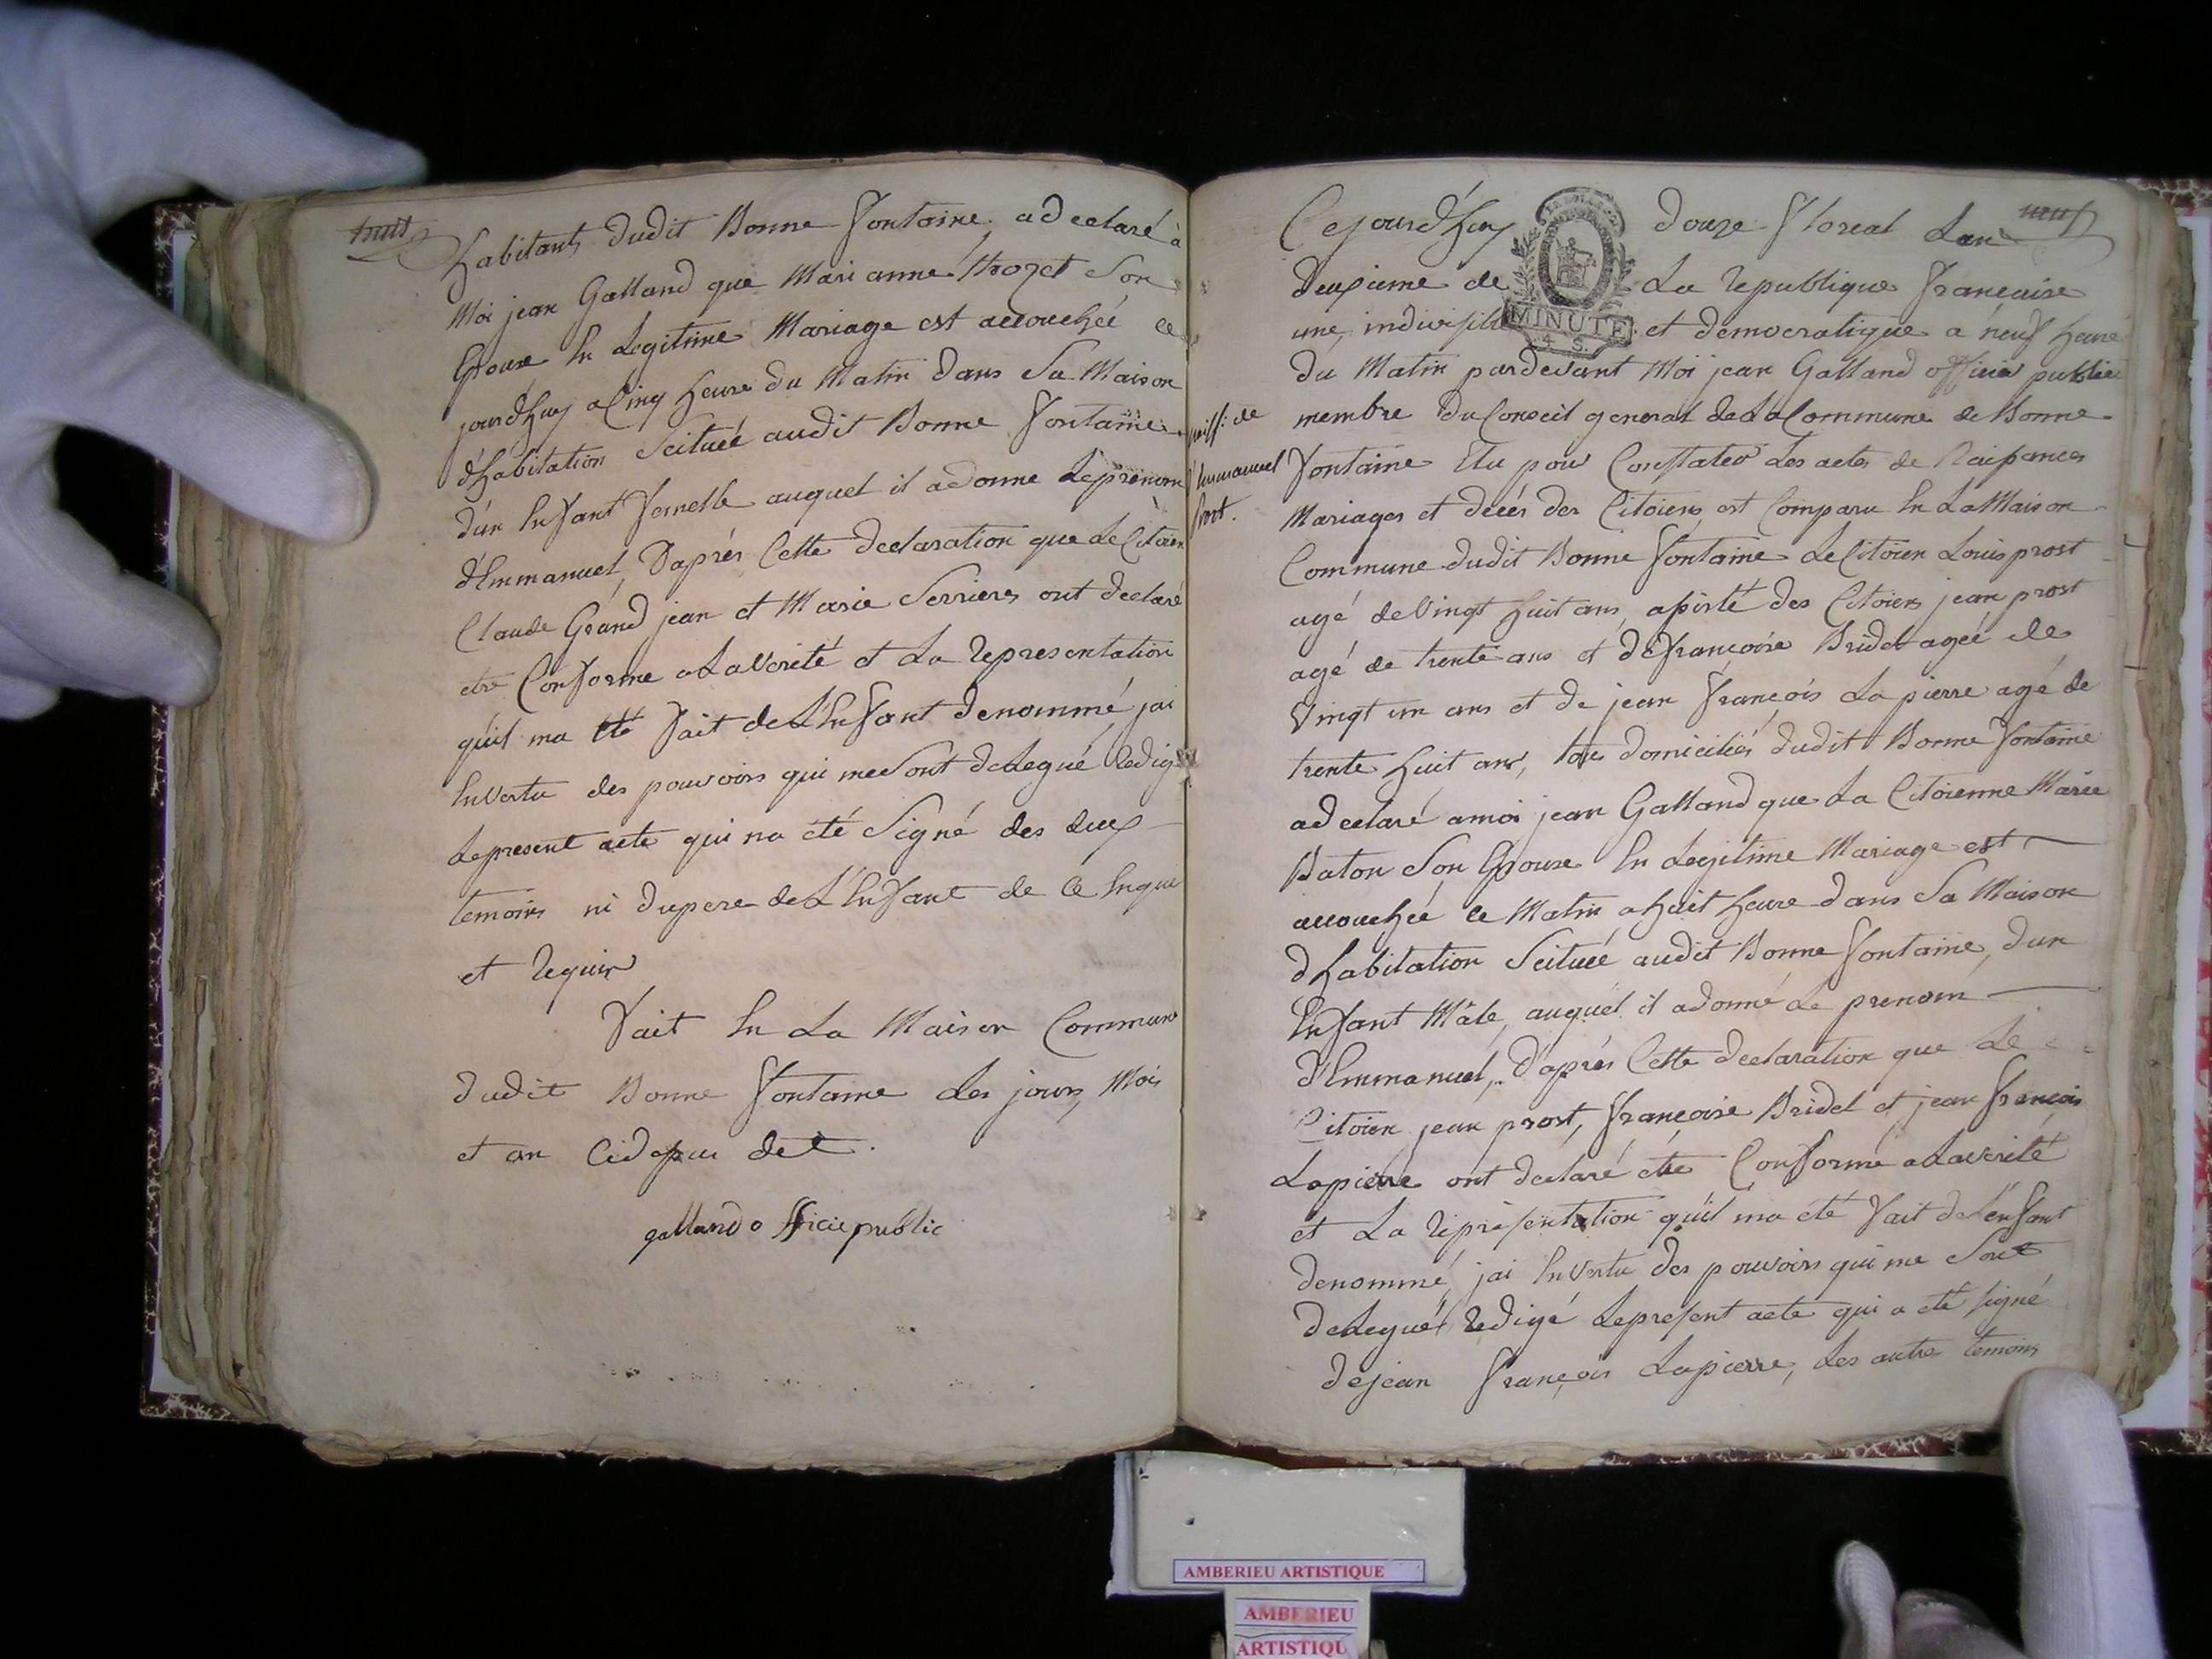 huit
habitants dudit Bonne Fontaine, a declaré à
Moi jean Galland que Mari anne Son
Epouse En Legitime Mariage est accouchée ce
jourdhuy a Cinq heure du Matin dans Sa Maison
d'habitation Scituée audit Bonne Fontaine
d'un Enfant femelle auquel il a donne Le prenom
d'Emmanuel, D'aprés Cette declaration que Le Citoien
Claude Grand jean et Marie Serrieres ont declaré
etre Conforme a La Verité et La Representation
quil ma été Fait de L'Enfant denommé, jai
En Vertu des pouvoirs qui me Sont deLegué Redigé
Le present acte qui na été Signé des deux
temoins ni du pere de L'Enfant de Ce Enquis
et Requis
Fait En La Maison Commune
dudit Bonne Fontaine Les jours, Mois
et an Cidessus dit.
galland officie public
neuf
Cejourd'huy douze Floreal Lan
Deuxieme de La Republique Francaise
une, indivisible et democratique a neuf heure
du Matin pardevant Moi jean Galland officier public
membre du Conseil general de La Commune de Bonne
Fontaine Elu pour Constater Les actes de Naissances
Mariages et decés des Citoiens est Comparu En La Maison
Commune dudit Bonne Fontaine Le Citoien Louis prost
agé de Vingt huit ans, assisté des Citoiens jean prost
agé de trente ans et de Françoise Bridet agée de
Vingt un ans et de jean François Lapierre agé de
trente huit ans, tous domiciliés dudit Bonne Fontaine
a declaré a moi jean Galland que La Citoienne Marie
Baton Son Epouse En Legitime Mariage est
accouchée ce Matin a huit heure dans Sa Maison
d'habitation Scituée audit Bonne Fontaine, d'un
Enfant Mâle, auquel il a donné Le prenom
d'Emmanuel, D'aprés Cette declaration que Le
Citoien jean prost, Françoise Bridet et jean François
Lapierre ont declaré etre Conforme a La verité
et La Representation quil ma été Fait de L'enfant
denommé, jai En Vertu des pouvoirs qui me Sont
deLegué Redigé Le present acte qui a été signé
de jean François Lapierre, Les autre temoins
de
Emmanuel
Prost.
MINUTE
4 S.
AMBERIEU ARTISTIQUE
AMBERIEU
ARTISTIQU